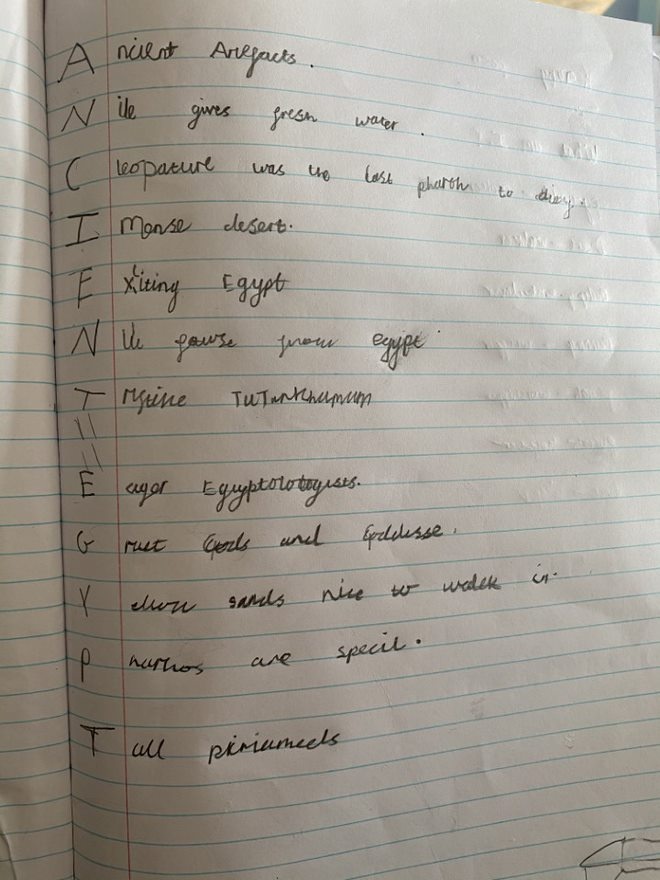 Ancient Arefacts.
Nile gives fresh water.
Cleopature was the last pharoh to
Imense desert.
Exiting Egypt
Nile from egypt
T TuTankhamum
Eager Egyptolotogists.
Great Gods and Goddesse.
Yellow sands nice to walk in.
Pharhos are specil.
Tall piriameds